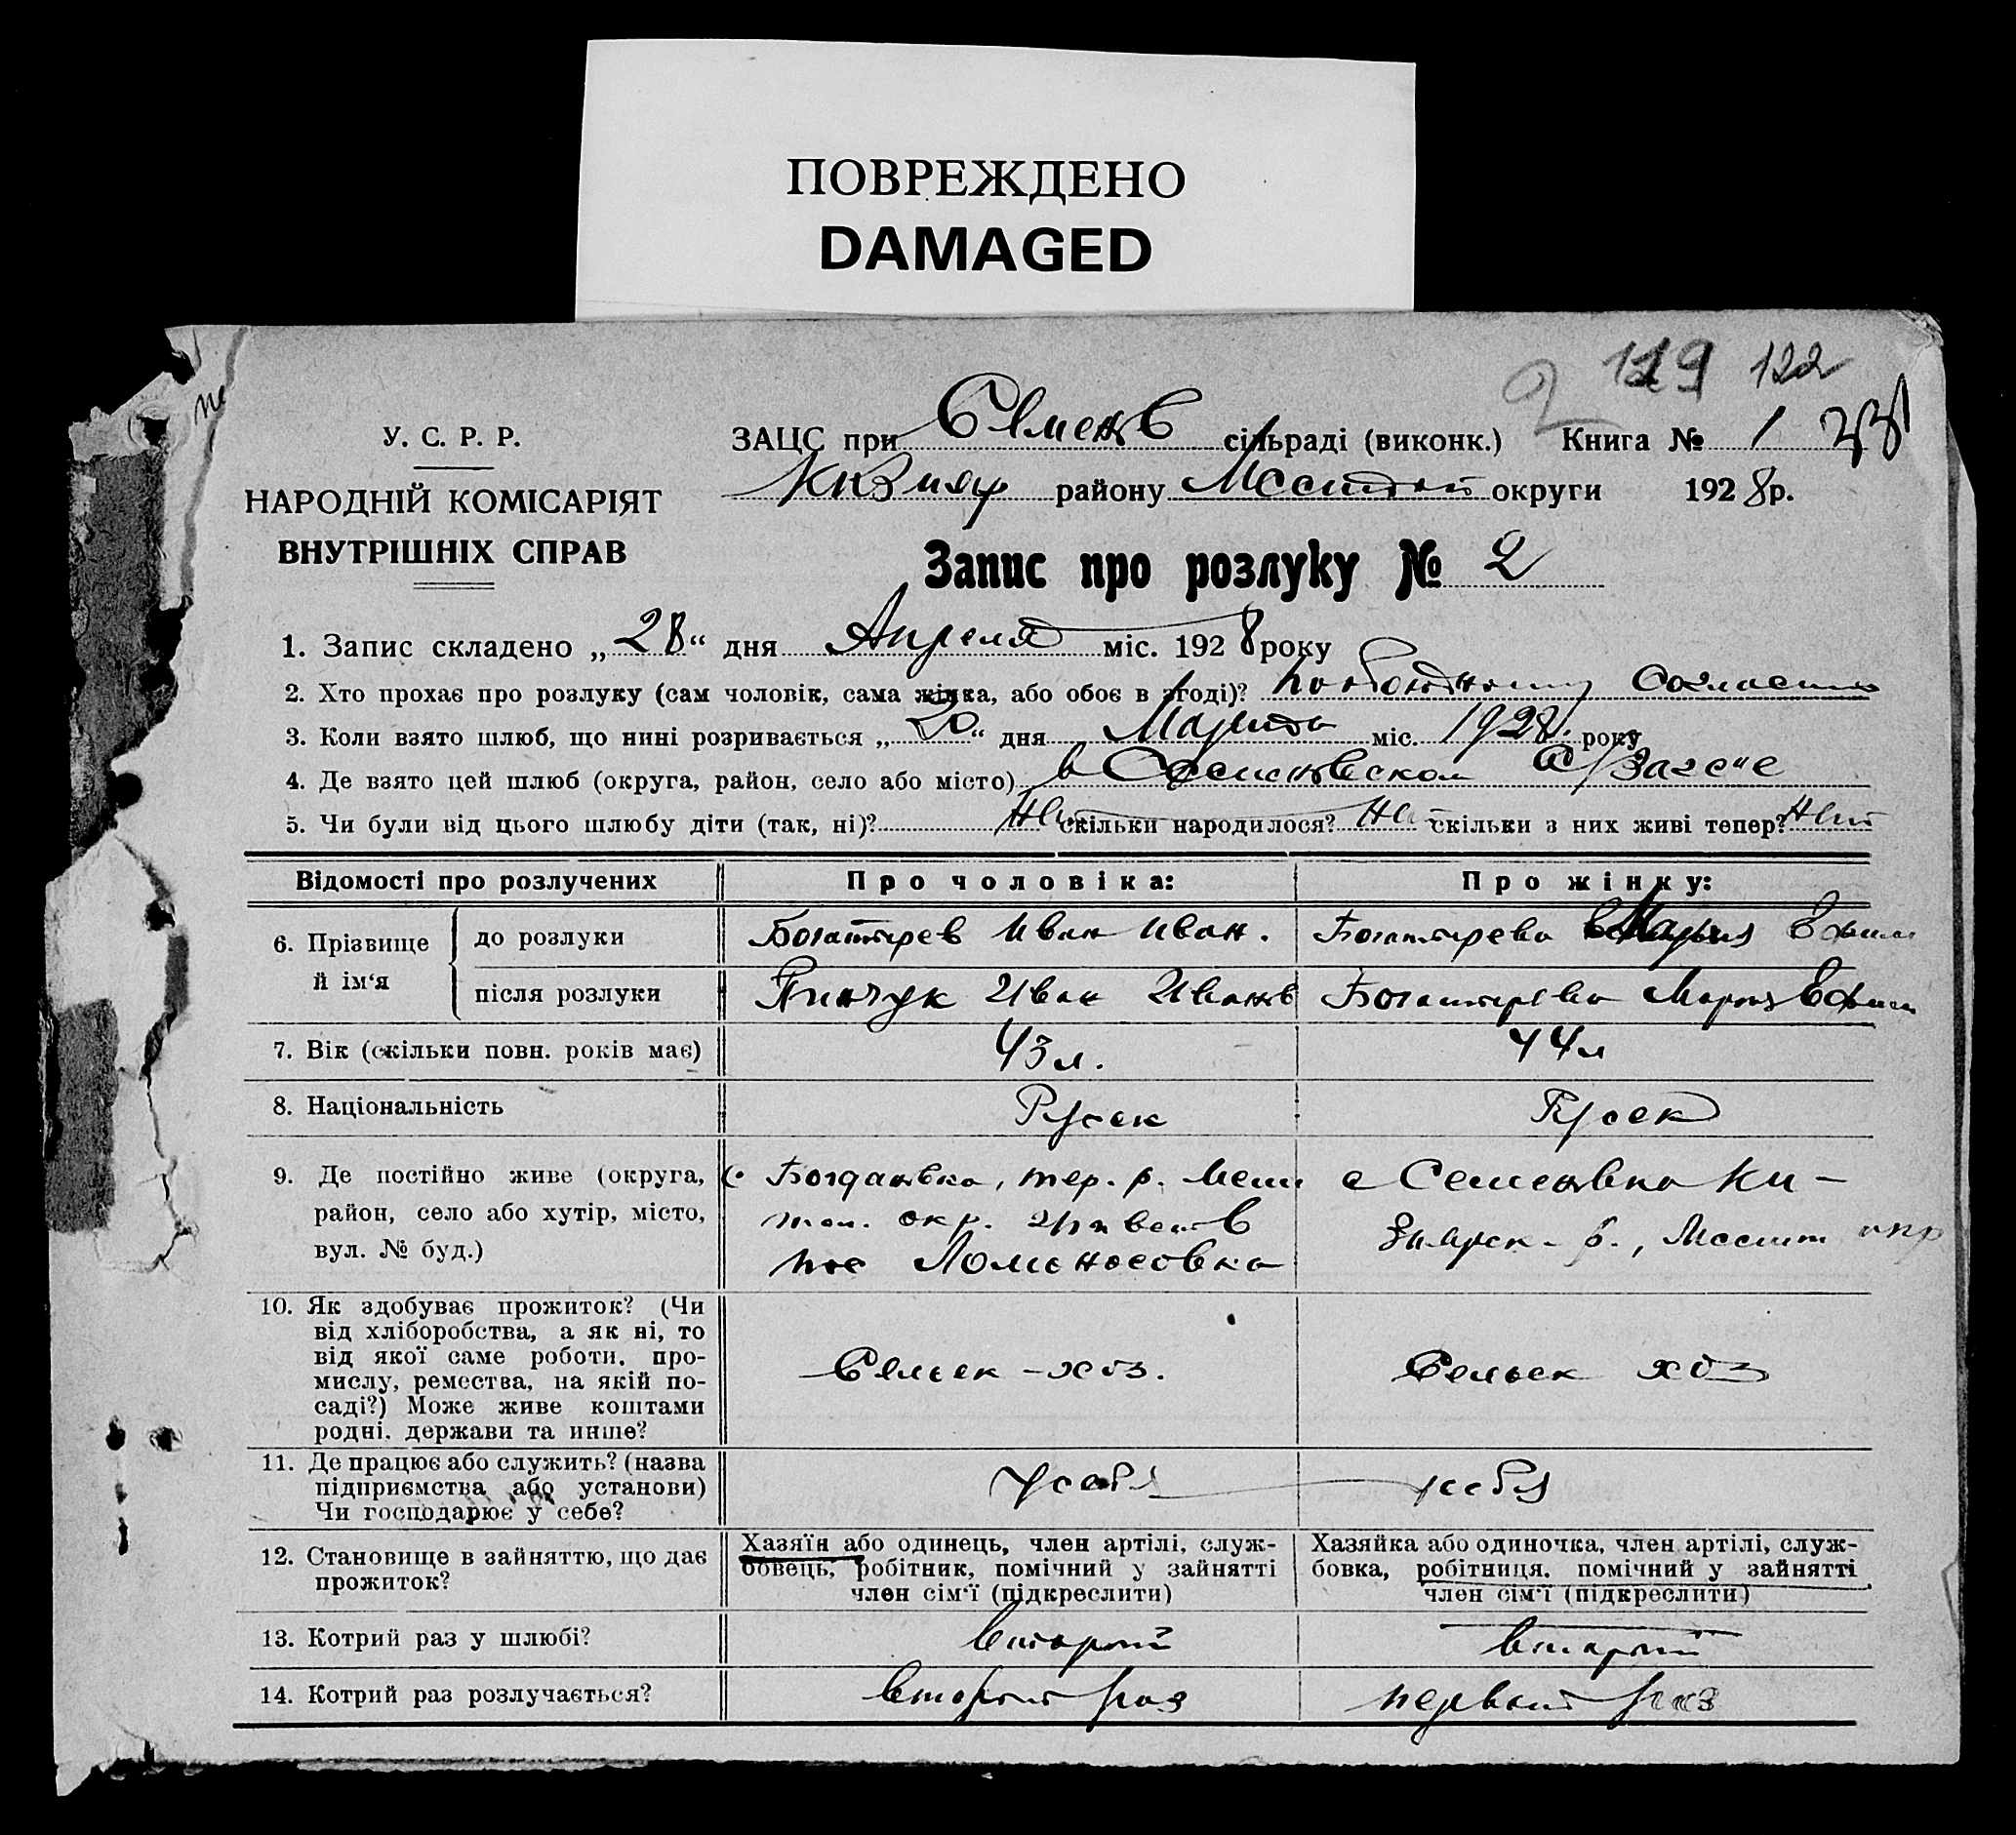 ПОВРЕЖДЕНО
DAMAGED
119 122
У. С. Р. Р.
НАРОДНІЙ КОМІСАРІЯТ
ВНУТРІШНІХ СПРАВ
ЗАЦС при Семенів сільраді (виконк.) Книга № 1
району округи 1928 р.
Запис про розлуку № 2
1. Запис складено „28“ дня Апреля міс. 1928 року
2. Хто прохає про розлуку (сам чоловік, сама жінка, або обоє в згоді)? согласию
3. Коли взято шлюб, що нині розривається „20“ дня Марта міс. 1928 року
4. Де взято цей шлюб (округа, район, село або місто) в Семеновском Загсе
5. Чи були від цього шлюбу діти (так, ні)? Нет скільки народилося? Нет скільки з них живі тепер? Нет
Відомості про розлучених Про чоловіка: Про жінку:
6. Прізвище й ім‘я до розлуки Богатырев Иван Иван. Богатырева Мария Ефим
після розлуки Пинчук Иван Иванов Богатырева Мария Ефим
7. Вік (скільки повн. років має) 43 л. 44 л
8. Національність Русск Русск
9. Де постійно живе (округа, район, село або хутір, місто, вул. № буд.)
с. Богдановка, тер. р. Мели
топ. окр.
пос Ломоносовка
с Семеновка Ки-
зиярск. р., Мелит окр
10. Як здобуває прожиток? (Чи
від хліборобства, а як ні, то
від якої саме роботи, про-
мислу, ремества, на якій по-
саді?) Може живе коштами
родні, держави та инше?
Сельск-хоз. Сельск хоз
11. Де працює або служить? (назва
підприємства або установи)
Чи господарює у себе?
у себя у себя
12. Становище в зайняттю, що дає
прожиток?
Хазяїн або одинець, член артілі, служ-
бовець, робітник, помічний у зайнятті
член сім‘ї (підкреслити)
Хазяйка або одиночка, член артілі, служ-
бовка, робітниця, помічний у зайнятті
член сім‘ї (підкреслити)
13. Котрий раз у шлюбі? второй второй
14. Котрий раз розлучається? второй раз первый раз